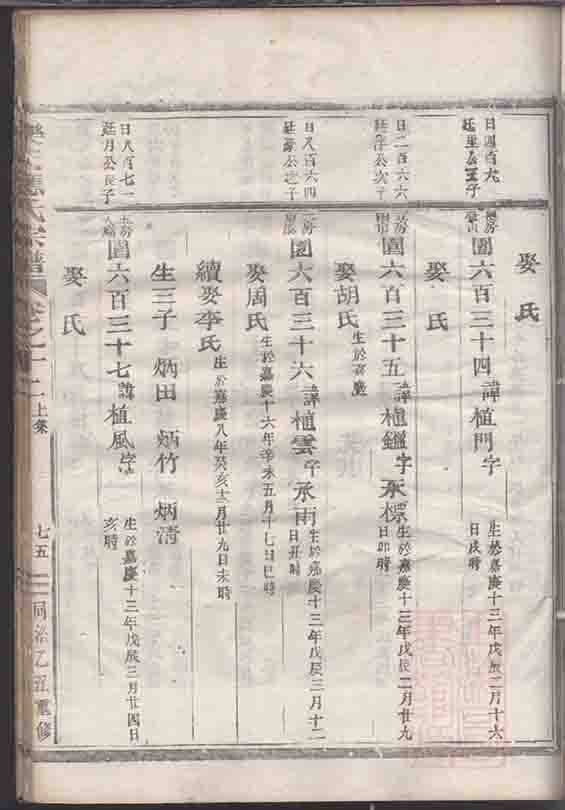 娶氏
日四百九
廷里公三子
圖六百三十四諱植門字
生於嘉慶十三年戊辰二月十六
日戌時
娶氏
日二百六六
公次子
圖六百三十五諱植鑑字承標
生於嘉慶十三年戊辰二月廿九
日卯時
娶胡氏生於嘉慶
日八百六四
公之子
圖六百三十六諱植雲字承雨
生於嘉慶十三年戊辰三月十二
日丑時
娶周氏生於嘉慶十六年辛未五月十七日巳時
續娶李氏生於嘉慶八年癸亥十二月廿九日未時
生三子 炳田 炳竹 炳清
日八百七一
廷月公長子
圖六百三十七諱植風字
生於嘉慶十三年戊辰三月廿四日
亥時
娶氏
氏宗譜 卷之十二上集 七五 同治乙丑重修